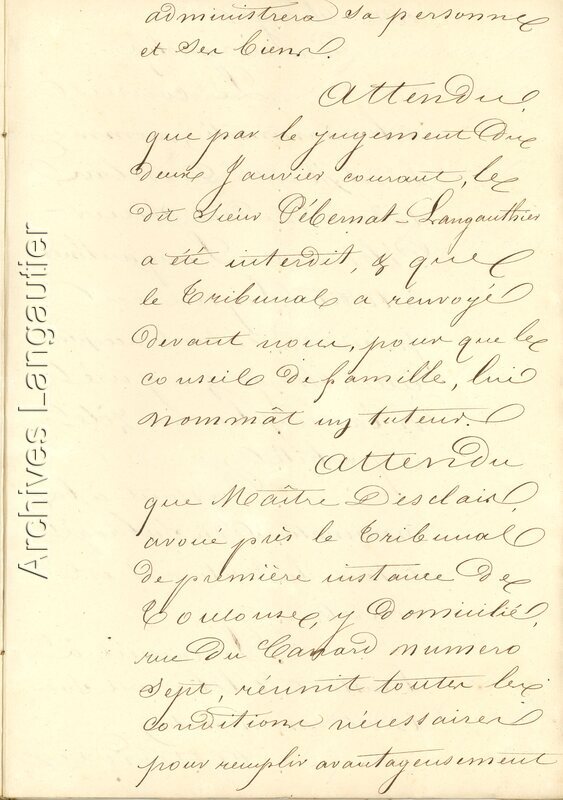 administrera sa personne
et ses biens.
Attendu
que par le jugement du
deux Janvier courant, le
dit sieur Pébernat-Langauthier
a été interdit, & que
le Tribunal a renvoyé
devant nous, pour que le
conseil de famille, lui
nommât un tuteur.
Attendu
que Maître Desclais,
avoué près le Tribunal
de première instance de
Toulouse, y domicilié,
rue du Canard numero
sept, réunit toutes les
conditions nécessaires
pour remplir avantageusement
Archives Langautier